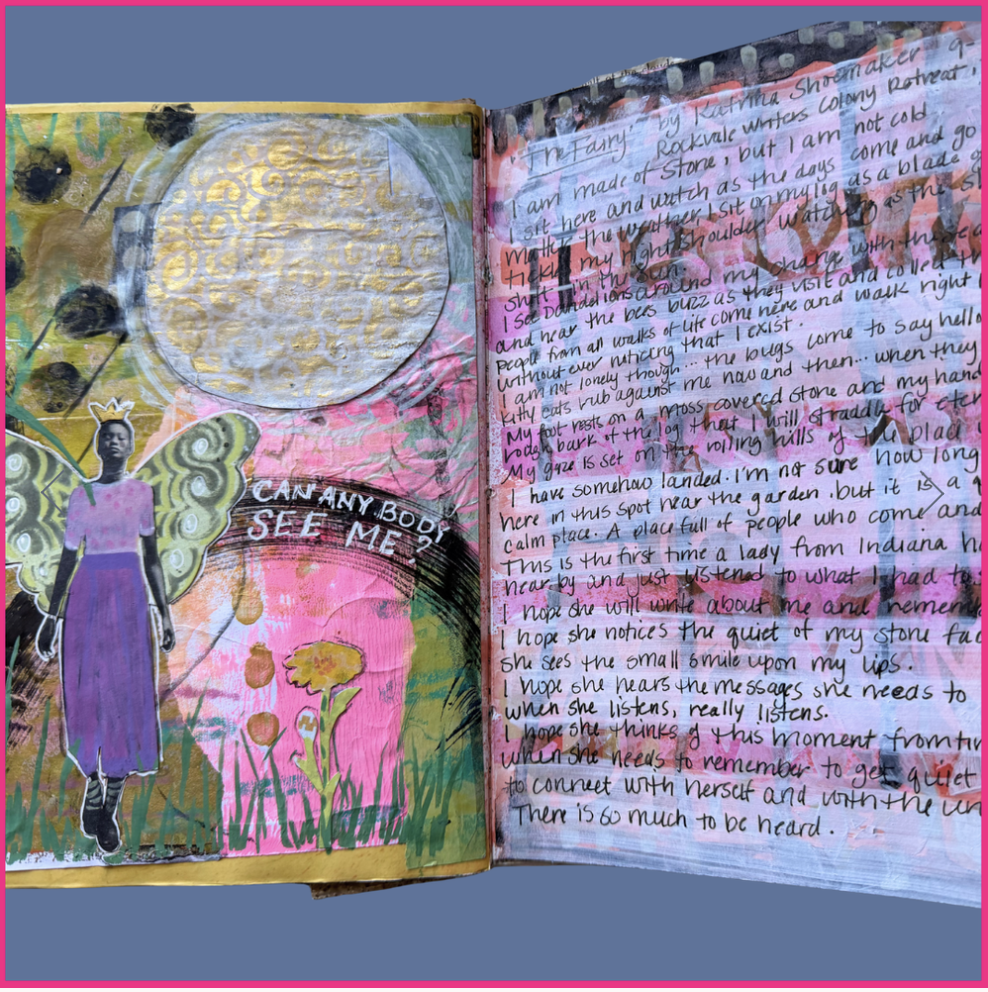 CAN ANY BODY
SEE ME?
"The Fairy" by Katrina Shoemaker 9-
Rockvale Writers Colony Retreat,
I am made of stone, but I am not cold
I sit here and watch as the days come and go
matter the weather. I sit on my log as a blade of
tickles my right shoulder watching as the
shift in the sun.
I see Dandelions around my change with the
and hear the bees buzz as they visit and collect
people from all walks of life come here and walk right
without ever noticing that I exist.
I am not lonely though... the bugs come to say hello
kitty cats rub against me now and then... when they
My foot rests on a moss covered stone and my hand
rough bark of the log that I will straddle for
My gaze is set on the rolling hills of the place
I have somehow landed. I'm not sure how long
here in this spot near the garden. but it is a
calm place. A place full of people who come and
This is the first time a lady from Indiana
near by and just listened to what I had to
I hope she will write about me and
I hope she notices the quiet of my stone
she sees the small smile upon my lips.
I hope she hears the messages she needs to
when she listens, really listens.
I hope she thinks of this moment from
when she needs to remember to get quiet
to connect with herself and with the
There is so much to be heard.